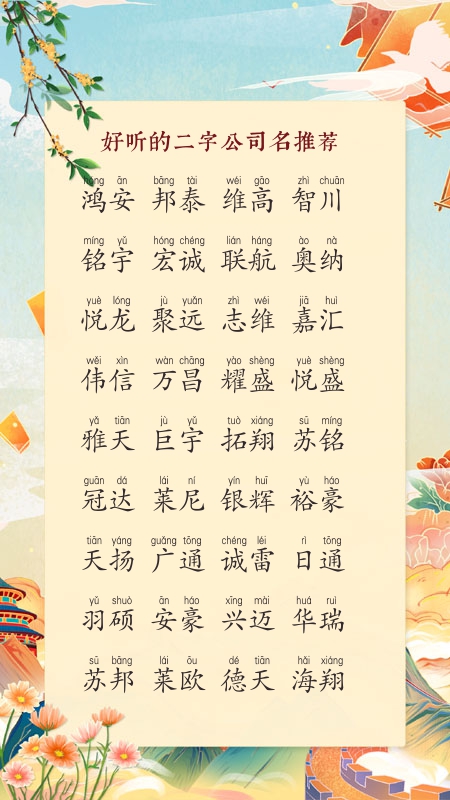 好听的二字公司名推荐
hóng ān bāng tài wéi gāo zhì chuān
鸿安 邦泰 维高 智川
míng yǔ hóng chéng lián háng ào nà
铭宇 宏诚 联航 奥纳
yuè lóng jù yuǎn zhì wéi jiā huì
悦龙 聚远 志维 嘉汇
wěi xìn wàn chāng yào shèng yuè shèng
伟信 万昌 耀盛 悦盛
yǎ tiān jù yǔ tuò xiáng sū míng
雅天 巨宇 拓翔 苏铭
guān dá lái ní yín huī yù háo
冠达 莱尼 银辉 裕豪
tiān yáng guǎng tōng chéng léi rì tōng
天扬 广通 诚雷 日通
yǔ shuò ān háo xīng mài huá ruì
羽硕 安豪 兴迈 华瑞
sū bāng lái ōu dé tiān hǎi xiáng
苏邦 莱欧 德天 海翔